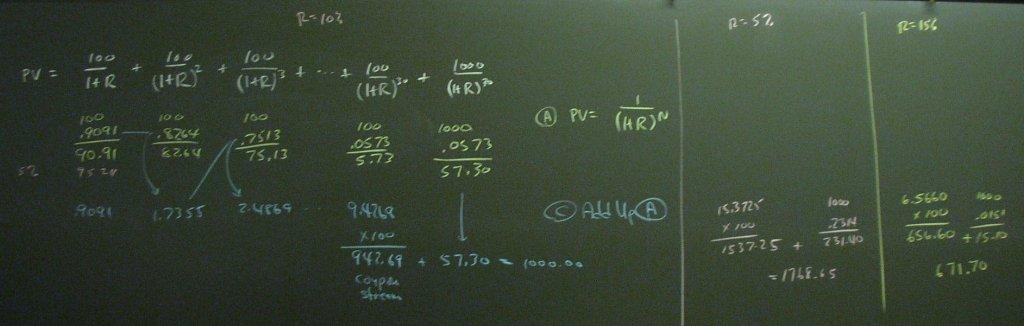 R=10%
PV = 100/1+R + 100/(1+R)² + 100/(1+R)³ + ... + 100/(1+R)³⁰ + 1000/(1+R)³⁰
100 100 100 100 1000
.9091 .8264 .7513 .0573 .0573
90.91 82.64 75.13 5.73 57.30
Ⓐ PV= 1/(1+R)^N
5%
.9091 1.7355 2.4869 ... 9.4269
x100
942.69 + 57.30 = 1000.00
coupon
stream
Ⓒ Add Up Ⓐ
R=5%
15.3725 1000
x100 .2314
1537.25 + 231.40
=1768.65
R=15%
6.5660 1000
x100 .0151
656.60 + 15.10
671.70